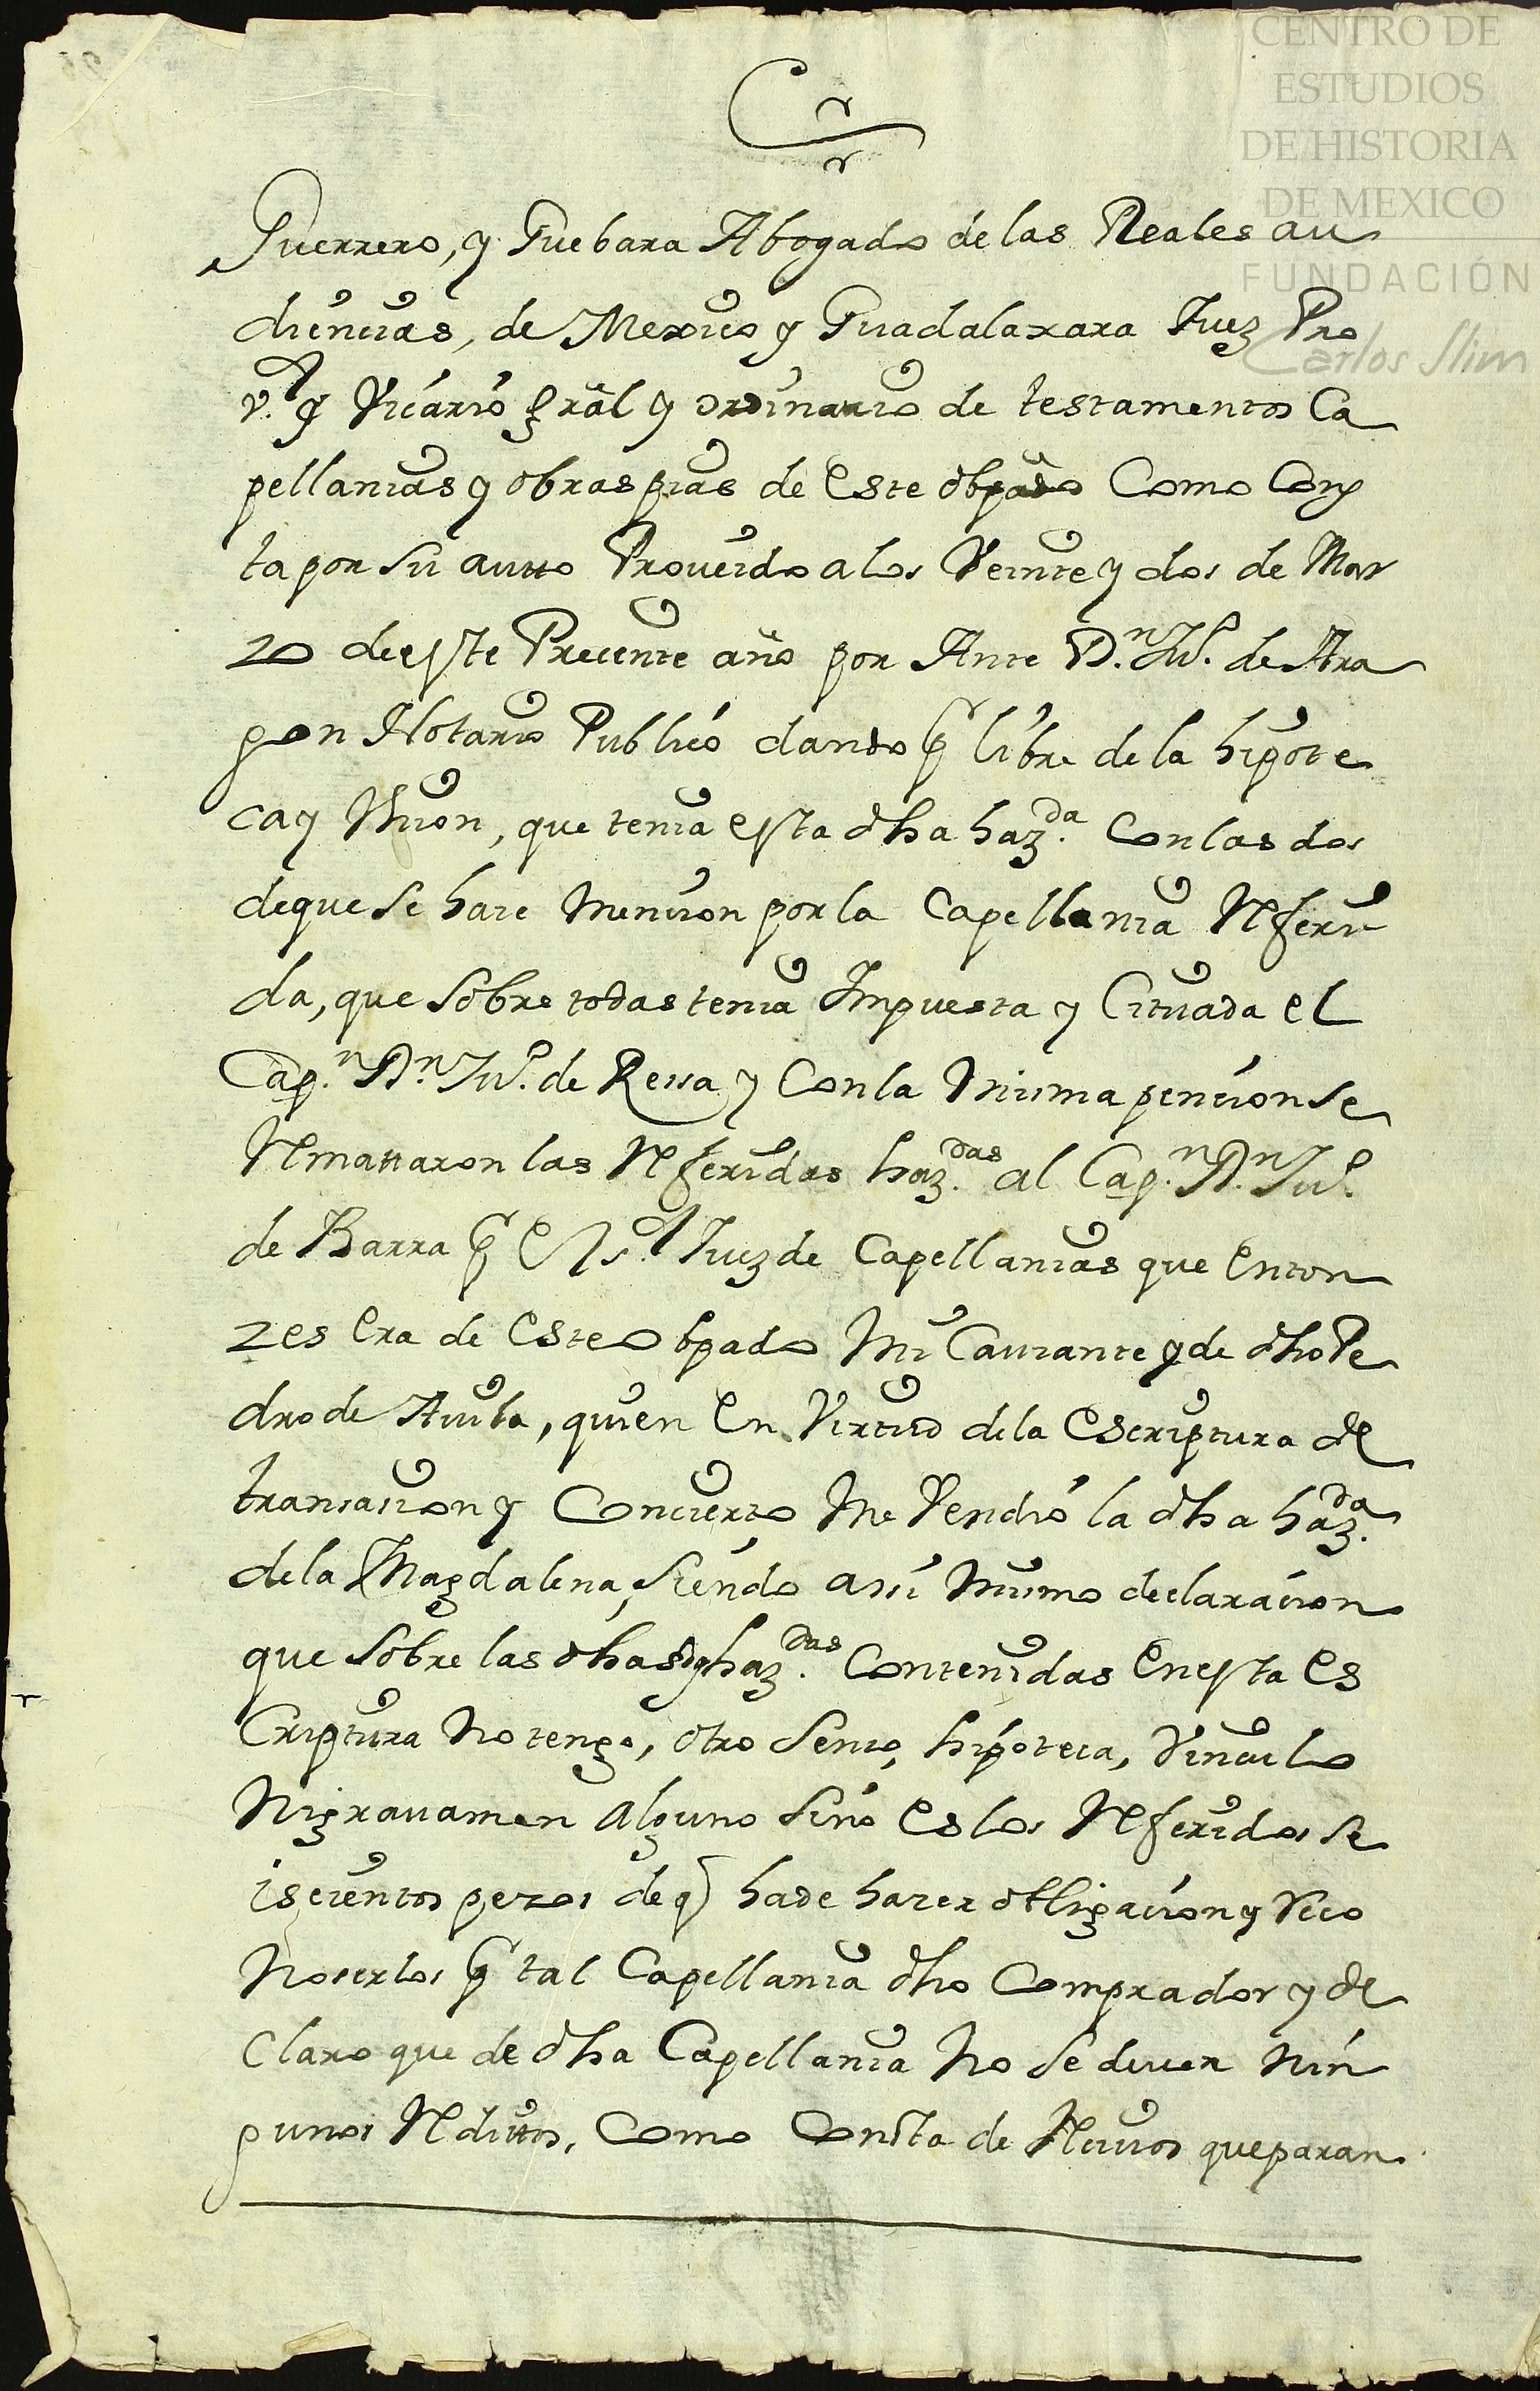 CENTRO DE
ESTUDIOS
DE HISTORIA
DE MEXICO
FUNDACIÓN
Carlos Slim
Guerrero, y Guebara Abogado de las Reales au
diencias, de Mexico y Guadalaxara Juez Pro
v.or y Vicario gral y ordinario de testamentos Ca
pellanias y obras pias de Este obpado Como Cons
ta por su autto Proueido a los Veinte y dos de Mar
zo de este Precente año por Ante D.n Ju.o de Ara
gon Notario Publico dando p libre de la hipote
ca y Union, que tenia esta dha haz.da Con las dos
de que se haze Mencion por la Capellania Referi
da, que sobre todas tenia Impuesta y Cituada el
Cap.n D.n Ju.o de Ressa y Con la Misma pencion se
Remattaron las Referidas haz.das al Cap.n D.n Ju.o
de Barra p el Juez de Capellanias que Enton
zes Era de Este obpado Mi Cauzante y de dho Pe
dro de Auila, quien En Virtud de la Escriptura de
transacion y Concierto Me Vendio la dha haz.da
de la Magdalena, siendo assi Mismo declaracion
que sobre las dhas haz.das Contenidas En esta Es
Criptura No tengo, otro Senso, hipoteca, Vinculo
Ni grauamen alguno sino Es los Referidos se
iscientos pezos de q ha de hazer obligacion y Reco
Noserlos p tal Capellania dho Comprador y de
Claro que de dha Capellania No se deuen Nin
gunos Redittos, Como Consta de Reciuos que paran